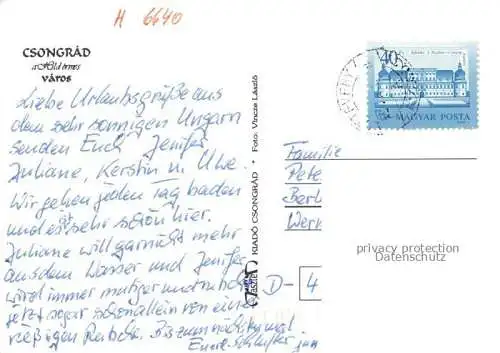 H 6640
CSONGRÁD
a Föld örmes
VÁROS
Liebe Urlaubsgrüße aus
dem sehr sonnigen Ungarn
senden Euch Jenifer
Juliane, Kerstin u. Uwe.
Wir gehen jeden Tag baden
und es ist sehr schön hier.
Juliane will garnicht mehr
aus dem Wasser und Jenifer
wird immer mutiger und rutscht
jetzt sogar schon allein von einer
riesigen Rutsche. Bis zum nächsten mal
Eure
KIADÓ CSONGRÁD * Foto: Vincze László
40
MAGYAR POSTA
Familie
Pete
Berl
Wern
D-4
privacy protection
Datenschutz